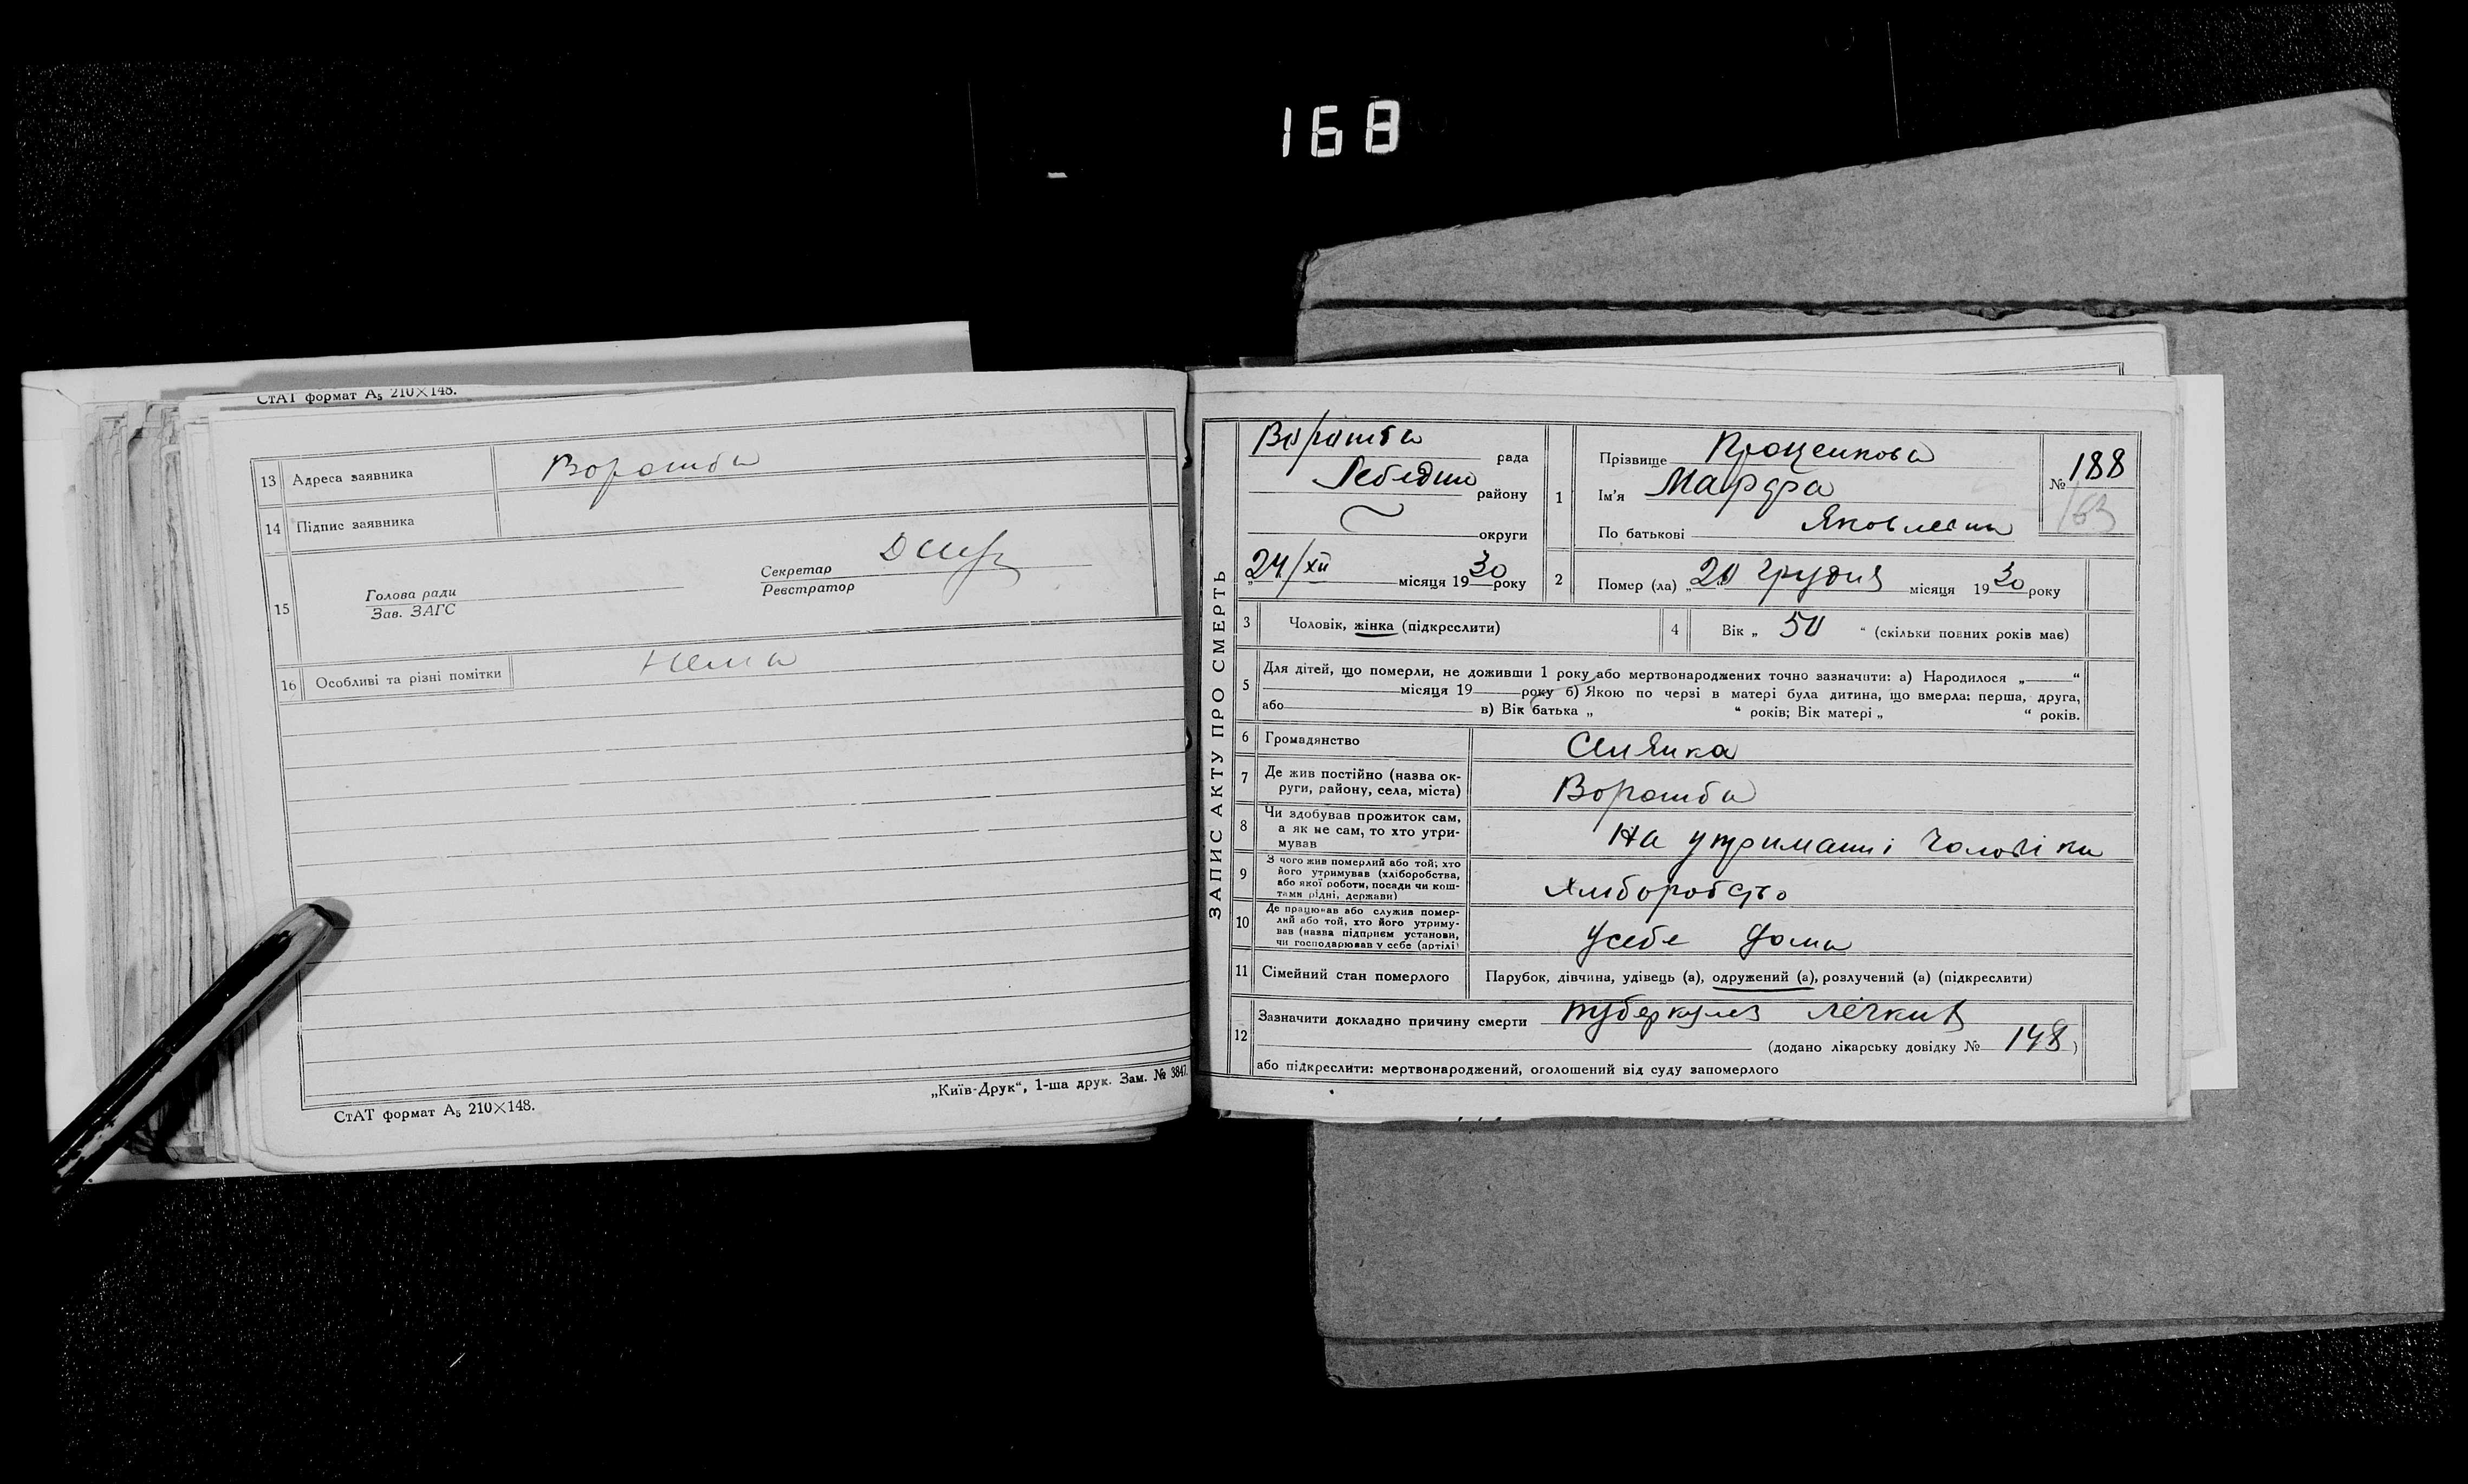 168
СтАТ формат А₅ 210×148.
13 Адреса заявника Ворожба
14 Підпис заявника
15 Голова ради
Зав. ЗАГС
Секретар
Реєстратор
16 Особливі та різні помітки Нема
„Київ-Друк“, 1-ша друк. Зам. № 3847.
СтАТ формат А₅ 210×148.
ЗАПИС АКТУ ПРО СМЕРТЬ
Ворожба рада
Лебедин району
округи
„24/XII місяця 1930 року
1 Прізвище Проценкова
Ім'я Марфа
По батькові Яковлевна
№ 188
163
2 Помер (ла) „20 грудня місяця 1930 року
3 Чоловік, жінка (підкреслити)
4 Вік „ 50 “ (скільки повних років має)
5 Для дітей, що померли, не доживши 1 року або мертвонароджених точно зазначити: а) Народилося „ “
місяця 19 року б) Якою по черзі в матері була дитина, що вмерла: перша, друга,
або в) Вік батька „ “ років; Вік матері „ “ років.
6 Громадянство Силянка
7 Де жив постійно (назва ок-
руги, району, села, міста) Ворожба
8 Чи здобував прожиток сам,
а як не сам, то хто утри-
мував На утриманні чоловіка
9 З чого жив померлий або той, хто
його утримував (хліборобства,
або якої роботи, посади чи кош-
тами рідні, держави) Хлиборобство
10 Де працював або служив помер-
лий або той, хто його утриму-
вав (назва підприєм установи,
чи господарював у себе (артілі) Усебе дома
11 Сімейний стан померлого Парубок, дівчина, удівець (а), одружений (а), розлучений (а) (підкреслити)
12 Зазначити докладно причину смерти туберкулез лёгких
(додано лікарську довідку № 148)
або підкреслити: мертвонароджений, оголошений від суду запомерлого